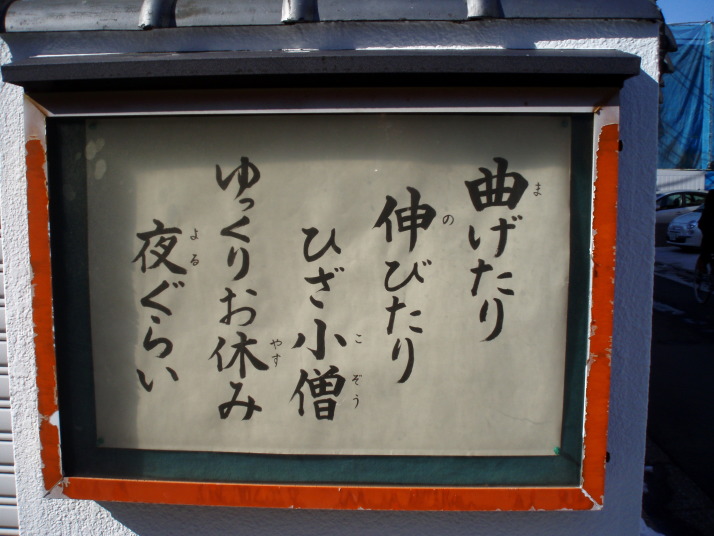 曲げたり
伸びたり
ひざ小僧
ゆっくりお休み
夜ぐらい